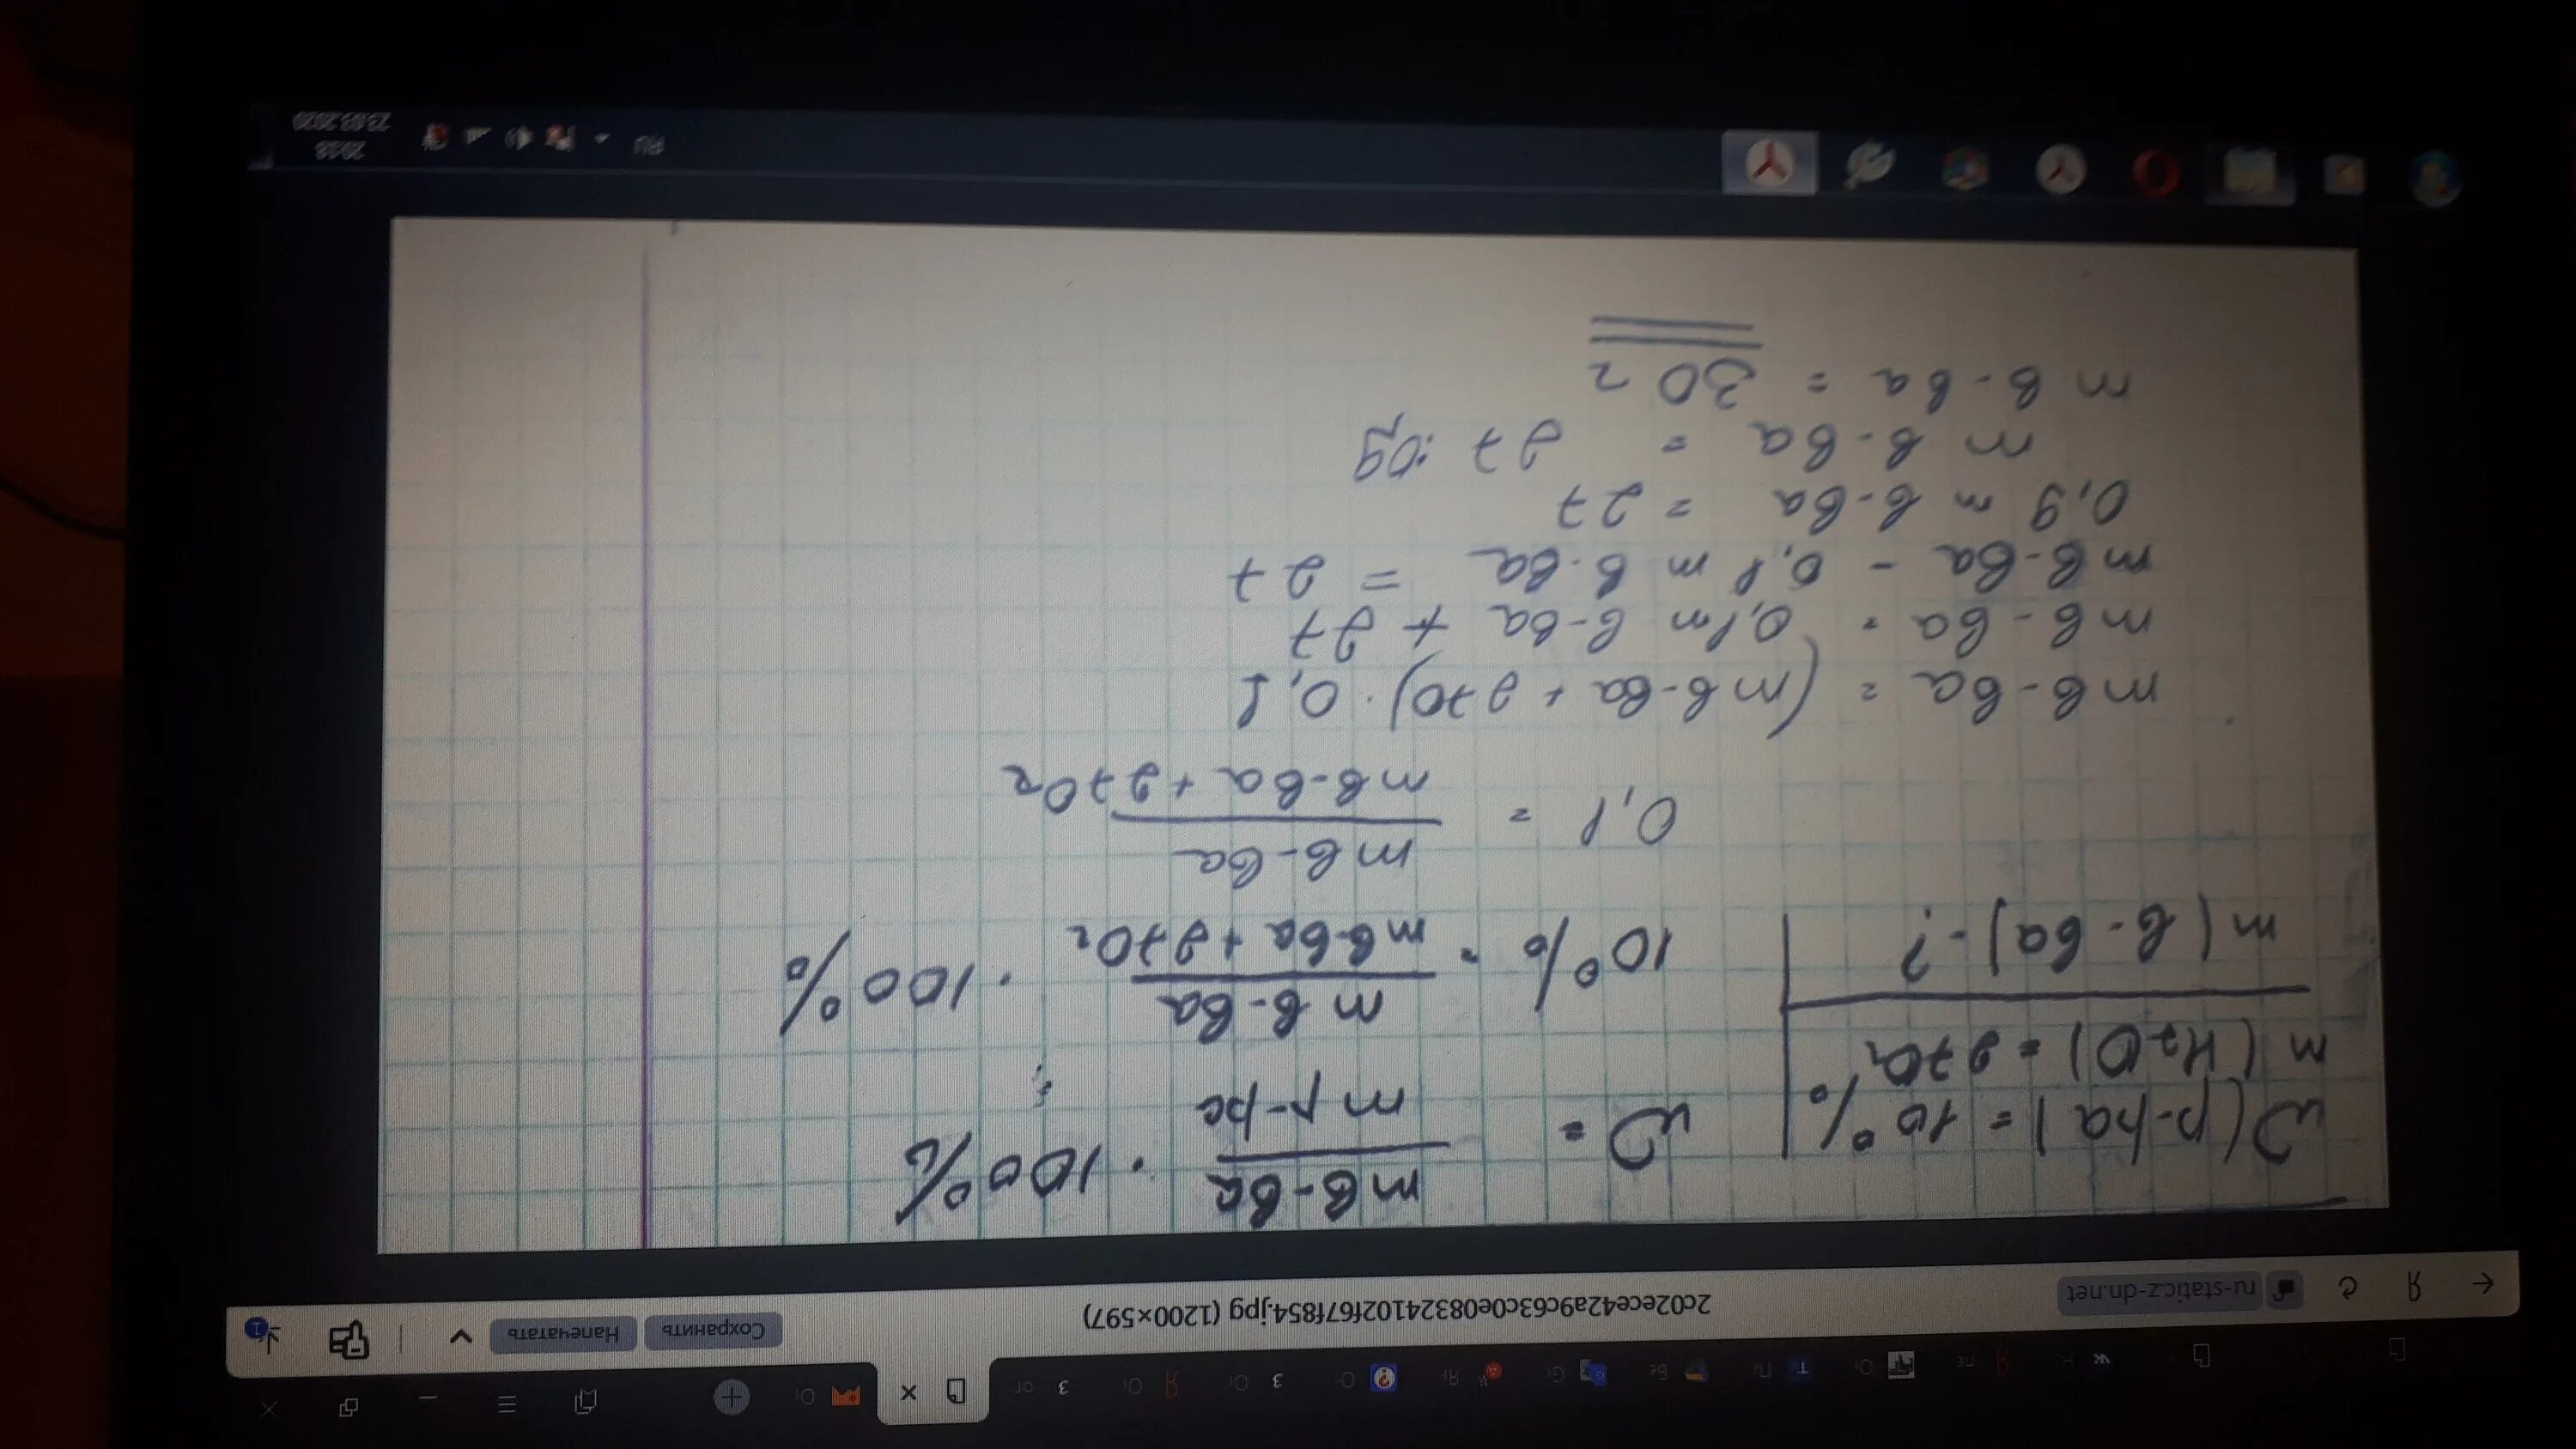 2c02ece42a9c63c0e08324102f67f854.jpg (1200×597)
ru-static.z-dn.net
Сохранить
Напечатать
ω(р-ра) = 10%
m(H₂O) = 270г
m(в-ва) - ?
ω = m в-ва / m р-ра · 100%
10% = m в-ва / m в-ва + 270г · 100%
0,1 = m в-ва / m в-ва + 270г
m в-ва = (m в-ва + 270) · 0,1
m в-ва = 0,1 m в-ва + 27
m в-ва - 0,1 m в-ва = 27
0,9 m в-ва = 27
m в-ва = 27 : 0,9
m в-ва = 30 г
RU
20:18
23.03.2020